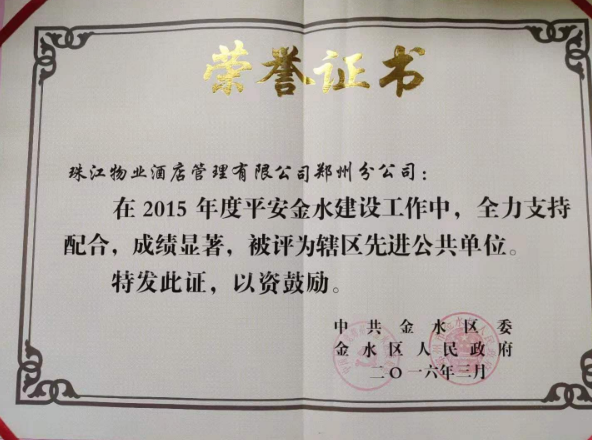 荣誉证书
珠江物业酒店管理有限公司郑州分公司：
在 2015 年度平安金水建设工作中，全力支持
配合，成绩显著，被评为辖区先进公共单位。
特发此证，以资鼓励。
中共金水区委
金水区人民政府
二〇一六年三月